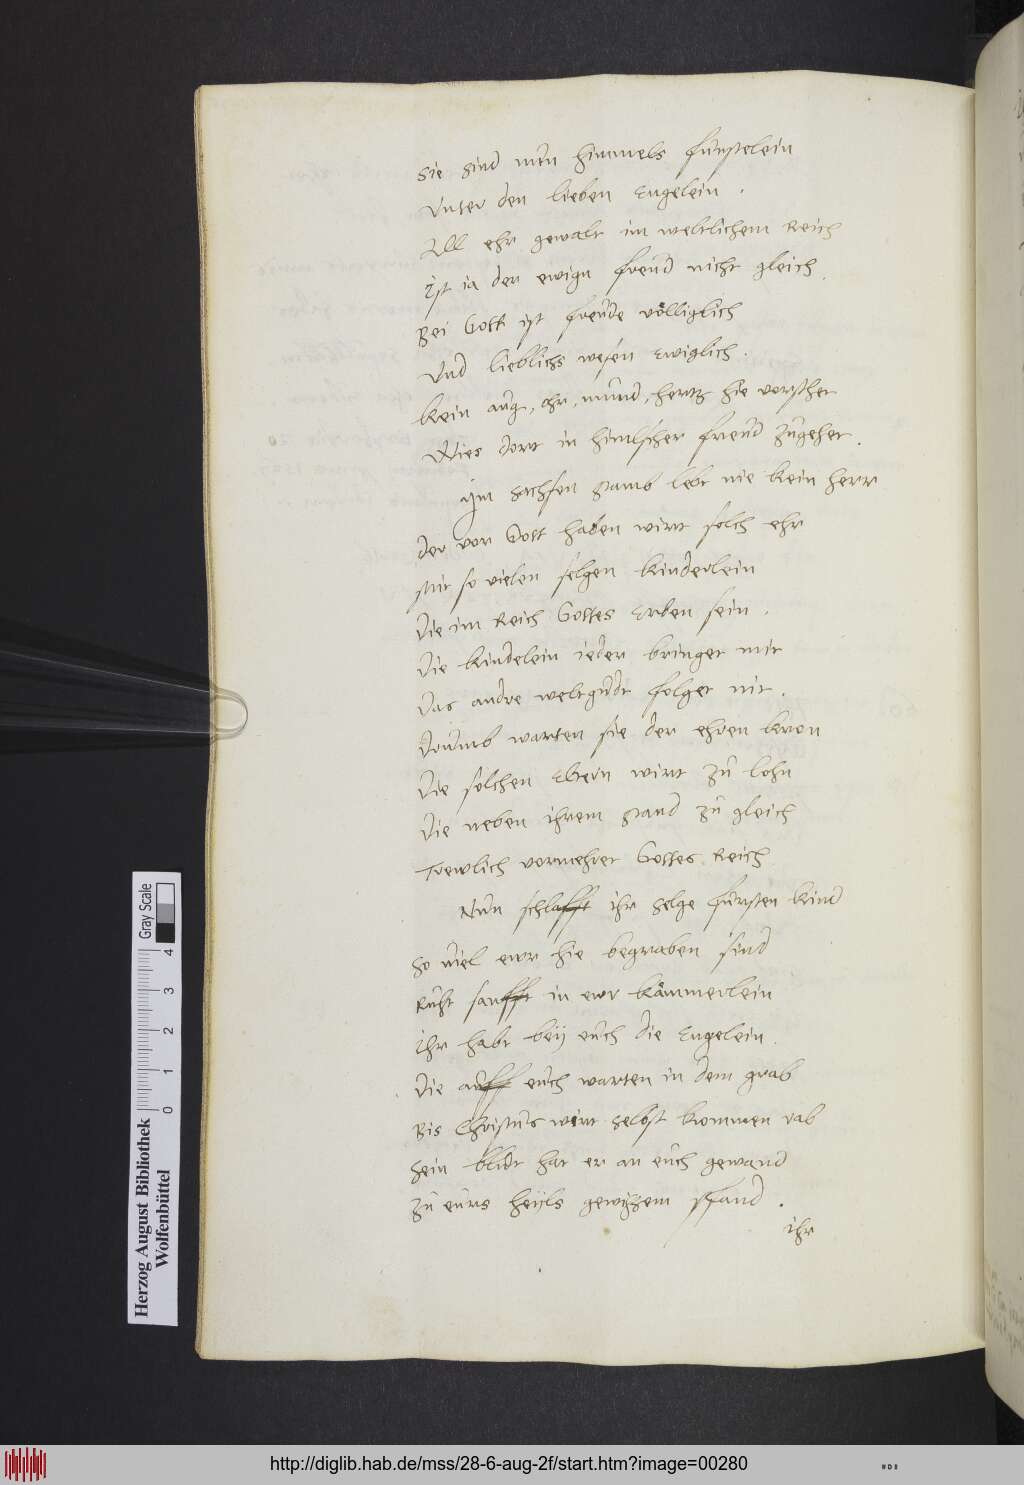 Sie sind nun himmels fürstelein
Vnter den lieben Engelein .
All ehr gewalt im weltlichem Reich
Ist ia der ewign freud nicht gleich .
Bei Gott ist freude völliglich
Vnd lieblichs wesen Ewiglich .
Kein aug, ohr, mund, hertz hie verstehet
Wies dort in himlscher freud zugehet .
Im Sachsen stamb lebt nie kein herr
Der vor Gott haben wirt solch ehr
Mit so vielen selgen kinderlein
Die im Reich Gottes Erben sein .
Die kindelein ieder bringet mit
Das andre weltgudt folget nit .
Drumb warten sie der ehren kron
Die solchen Eltern wirt zu lohn
Die neben ihrem stand zu gleich
Trewlich vermehret Gottes Reich
Nun schlafft ihr selge fürsten kind
So viel ewr hie begraben sind
Ruht sanfft in ewr kämmerlein
Ihr habt beÿ euch die Engelein .
Die auff euch warten in dem grab
Bis Christus wirt selbst kommen rab
Sein bludt hat er an euch gewand
Zu eurs heÿls gewissem pfand .
ihr
Herzog August Bibliothek
Wolfenbüttel
Gray Scale
0 1 2 3 4
http://diglib.hab.de/mss/28-6-aug-2f/start.htm?image=00280